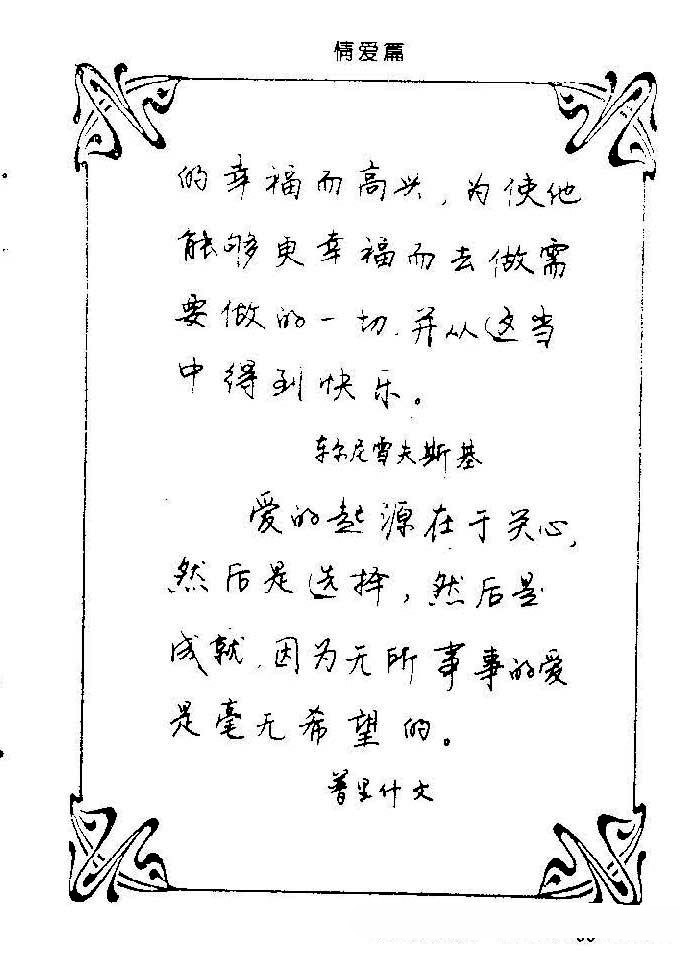 情爱篇
的幸福而高兴，为使他
能够更幸福而去做需
要做的一切，并从这当
中得到快乐。
车尔尼雪夫斯基
爱的起源在于关心，
然后是选择，然后是
成就，因为无所事事的爱
是毫无希望的。
普里什文